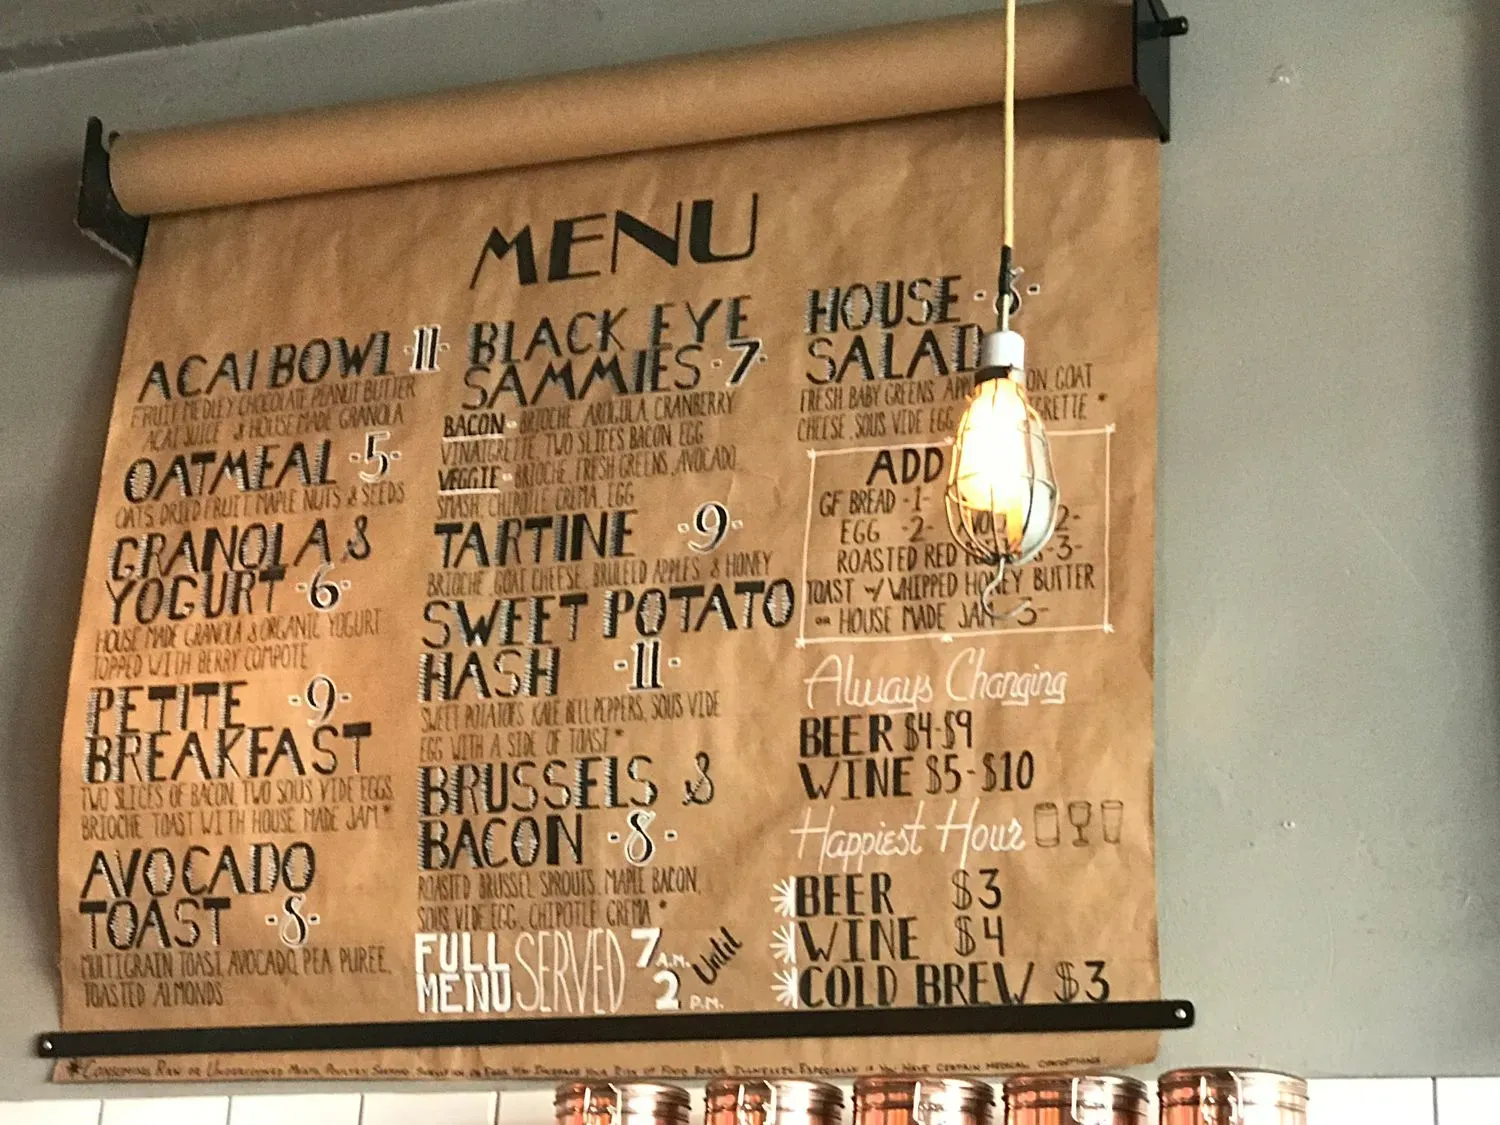 MENU
ACAI BOWL -11-
FRUIT MEDLEY CHOCOLATE PEANUT BUTTER
ACAI JUICE & HOUSE MADE GRANOLA
OATMEAL -5-
OATS DRIED FRUIT, MAPLE NUTS & SEEDS
GRANOLA &
YOGURT -6-
HOUSE MADE GRANOLA & ORGANIC YOGURT
TOPPED WITH BERRY COMPOTE
PETITE -9-
BREAKFAST
TWO SLICES OF BACON, TWO SOUS VIDE EGGS,
BRIOCHE TOAST WITH HOUSE MADE JAM *
AVOCADO
TOAST -8-
MULTIGRAIN TOAST, AVOCADO, PEA PUREE,
TOASTED ALMONDS
BLACK EYE
SAMMIES -7-
BACON - BRIOCHE, ARUGULA, CRANBERRY
VINAIGRETTE, TWO SLICES BACON, EGG
VEGGIE - BRIOCHE, FRESH GREENS, AVOCADO
SMASH, CHIPOTLE CREMA, EGG
TARTINE -9-
BRIOCHE, GOAT CHEESE, BRULEED APPLES, & HONEY
SWEET POTATO
HASH -11-
SWEET POTATOES, KALE, BELL PEPPERS, SOUS VIDE
EGG WITH A SIDE OF TOAST *
BRUSSELS &
BACON -8-
ROASTED BRUSSEL SPROUTS, MAPLE BACON,
SOUS VIDE EGG, CHIPOTLE CREMA *
FULL MENU SERVED 7 A.M. Until 2 P.M.
HOUSE
SALAD
FRESH BABY GREENS, GOAT
CHEESE, SOUS VIDE EGG *
ADD
GF BREAD -1-
EGG -2- 2-
ROASTED RED -3-
TOAST w/ WHIPPED HONEY BUTTER
OR HOUSE MADE JAM -3-
Always Changing
BEER $4-$9
WINE $5-$10
Happiest Hour
BEER $3
WINE $4
COLD BREW $3
*CONSUMING RAW OR UNDERCOOKED MEATS, POULTRY, SEAFOOD, SHELLFISH OR EGGS MAY INCREASE YOUR RISK OF FOOD BORNE ILLNESSES, ESPECIALLY IF YOU HAVE CERTAIN MEDICAL CONDITIONS.